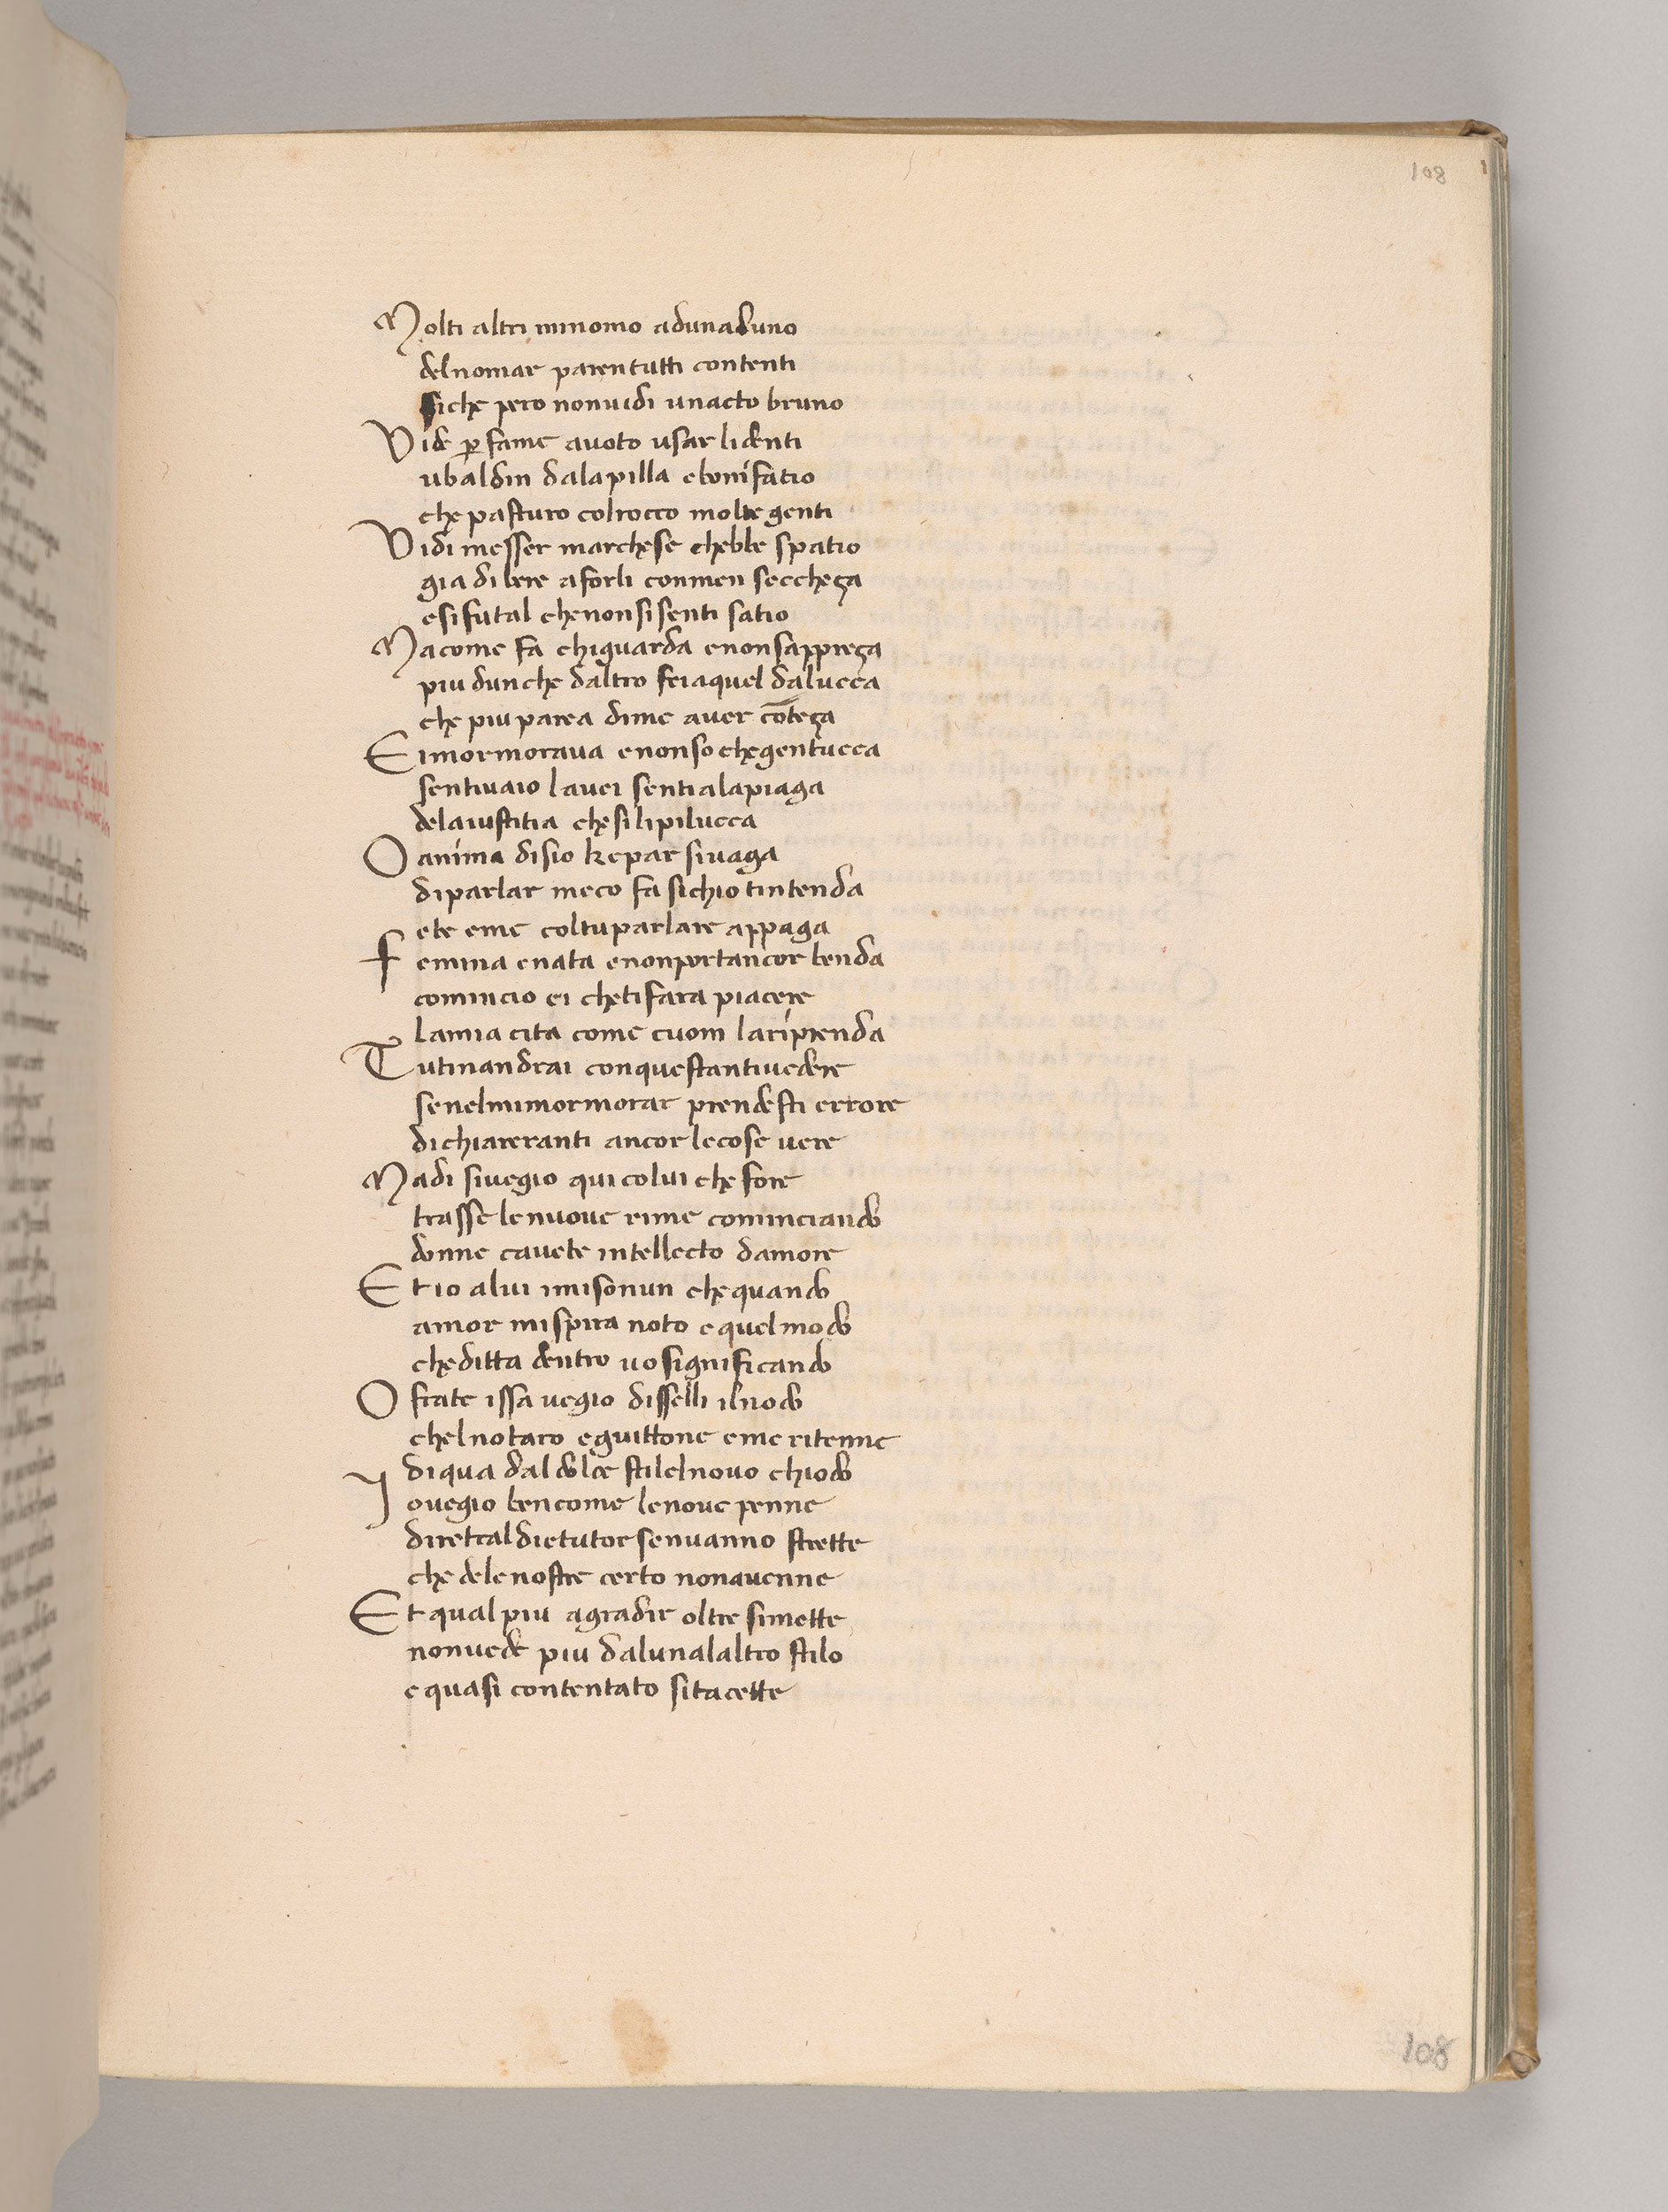 108
Molti altri minomo aduna duno
del nomar paren tutti contenti
siche pero non uidi un acto bruno
Vide p fame auoto usar li denti
ubaldin dala pilla e bonifatio
che pasturo col rocco molte genti
Vidi messer marchese chebbe spatio
gia di bere a forli con men seccheça
e si fu tal che non si senti satio
Ma come fa chi guarda e non sappreça
piu dun che daltro fei a quel da lucca
che piu parea di me auer cōteça
Ei mormoraua e non so che gentucca
sentiua io la uei sentia la piaga
dela iustitia che si li pilucca
O anima disio ke par si uaga
di parlar meco fa si chio tintenda
e te e me col tu parlare appaga
femina e nata e non porta ancor benda
comincio ei che ti fara piacere
la mia cita come cuom la riprenda
Tu tin andrai con questo antiuedere
se nel mi mormorar prendesti errore
dichiareranti ancor le cose uere
Ma di si uegio qui colui che fore
trasse le nuoue rime cominciando
donne cauete intellecto damore
Et io a lui i mi son un che quando
amor mi spira noto e quel modo
che ditta dentro uo significando
O frate issa uegio dissel li il nodo
chel notaro e guittone e me ritenne
di qua dal dolce stilel nouo chiodo
Jo uegio ben come le noue penne
diretral dictutor sen uanno strette
che dele nostre certo non auenne
Et qual piu a gradir oltre si mette
non uede piu da lun a laltro stilo
e quasi contentato si tacette
108